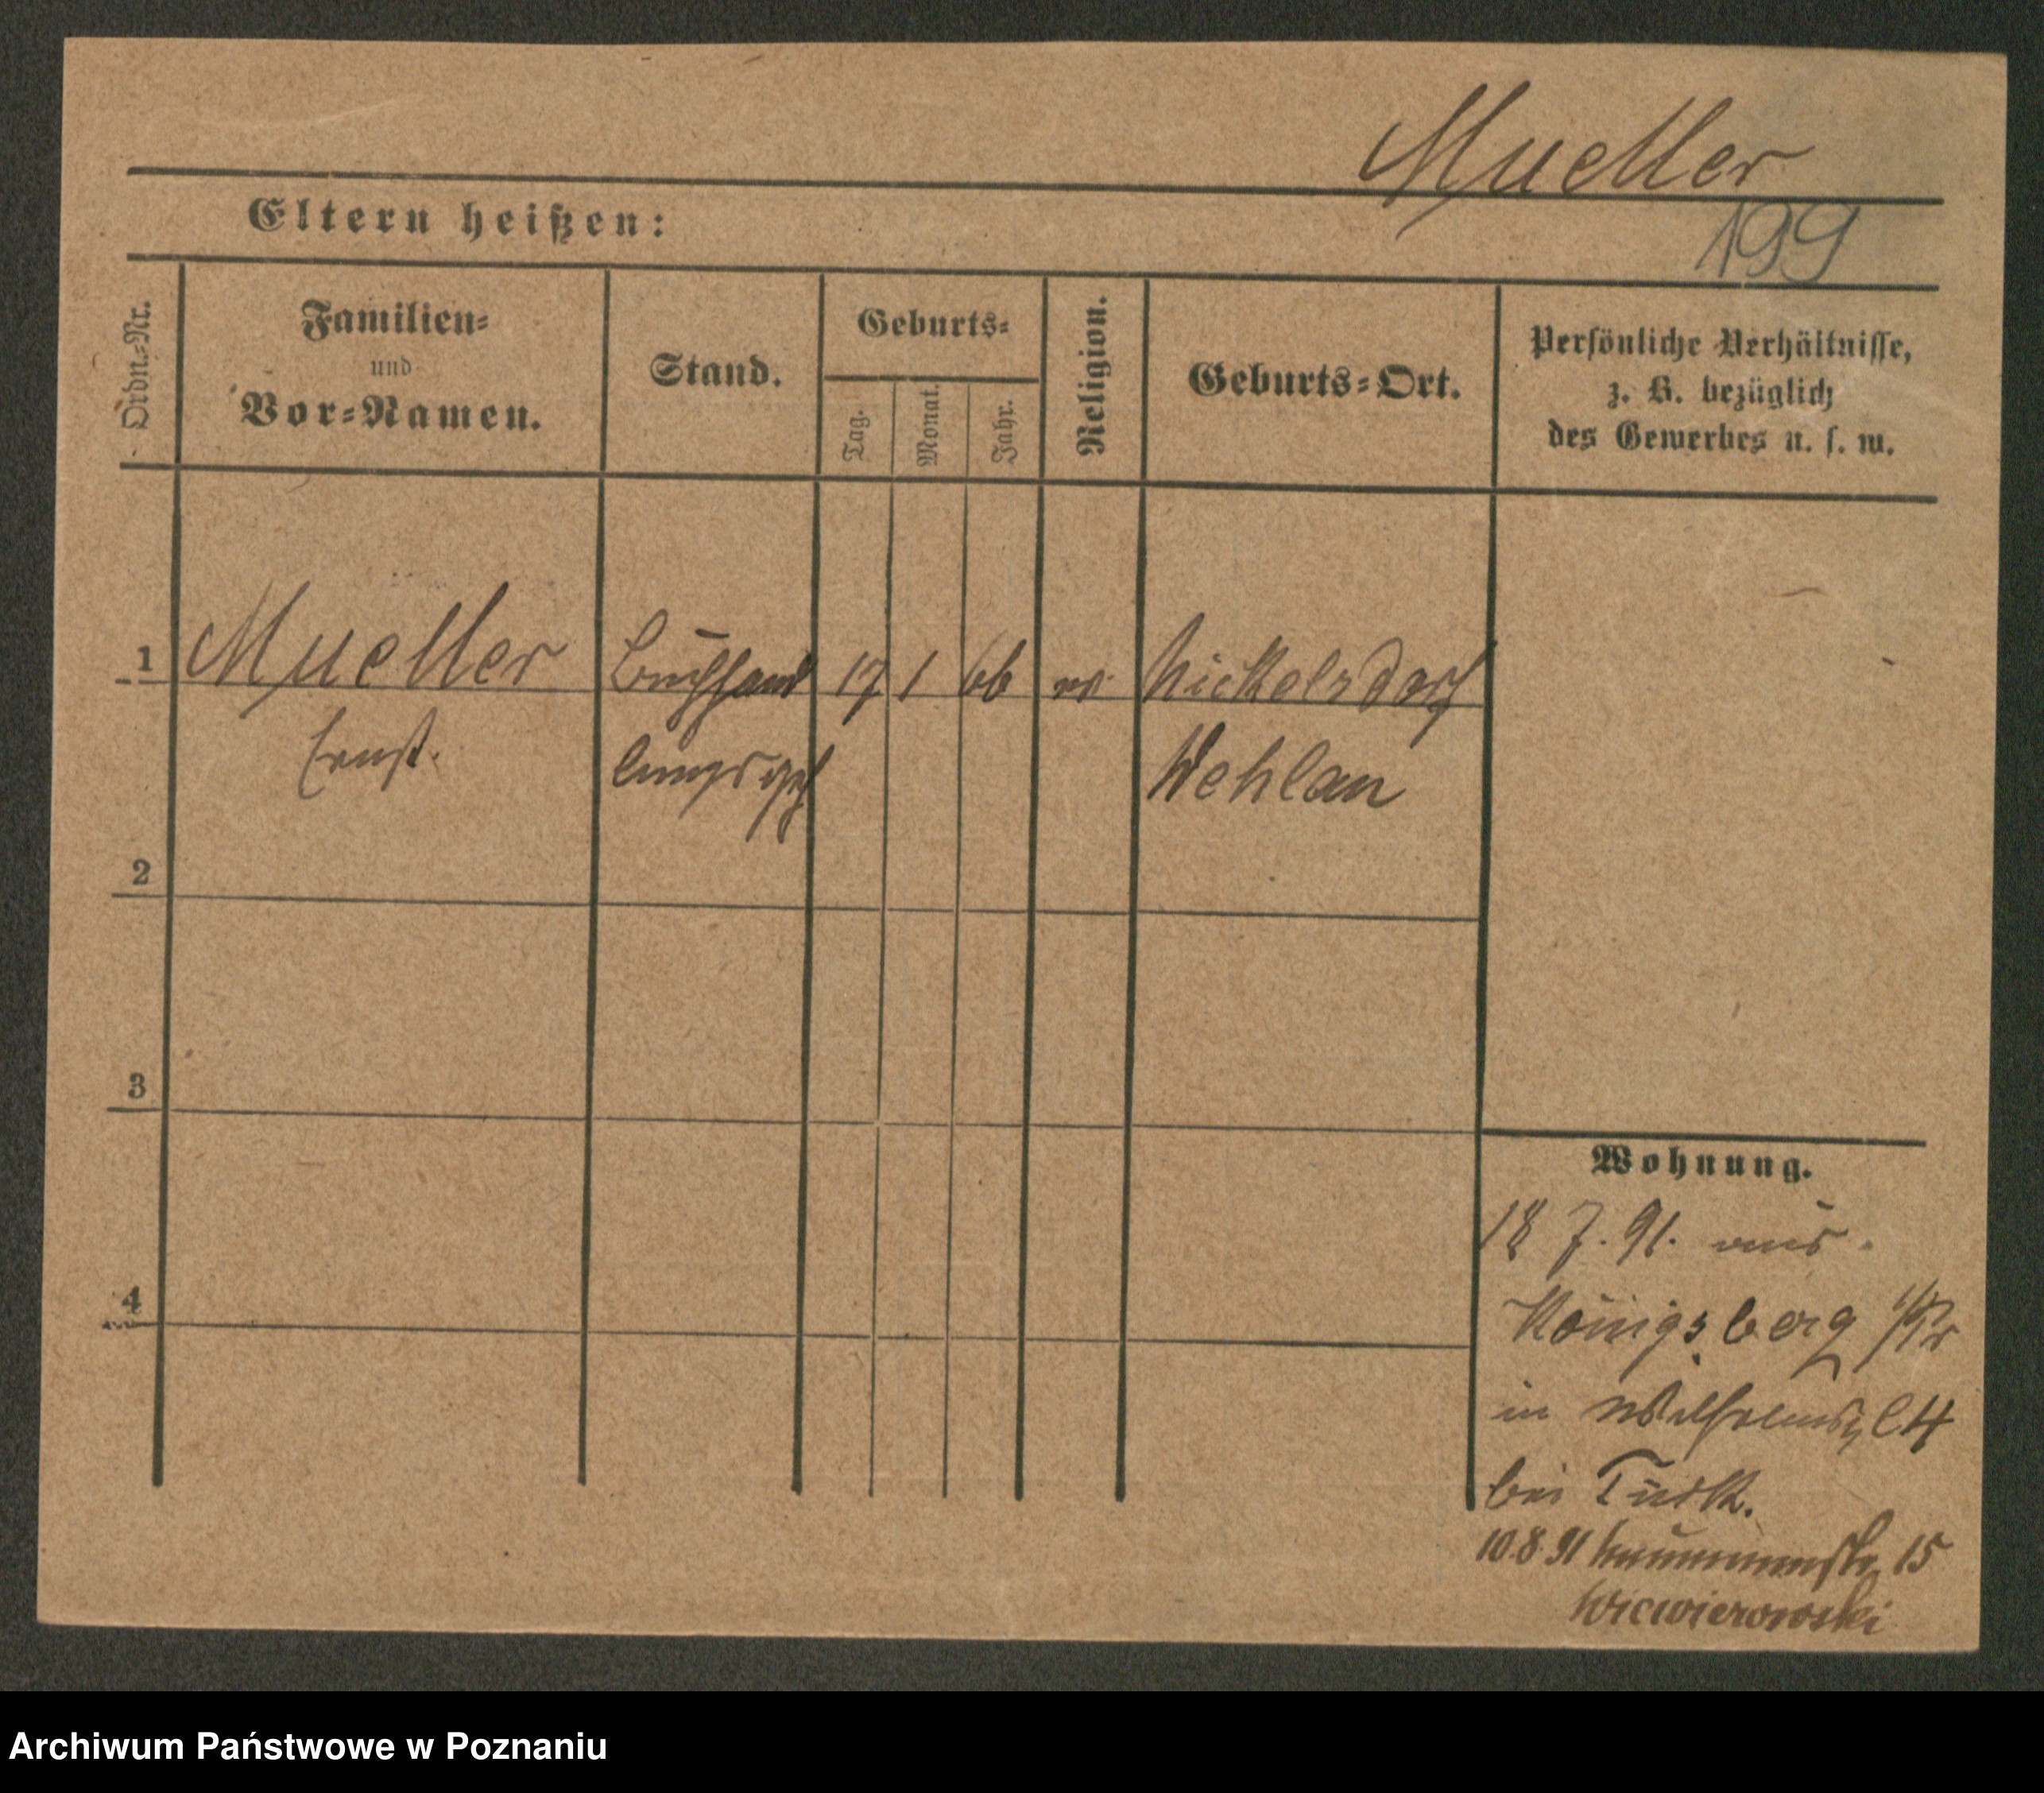 Mueller
199
Eltern heißen:
Ordn.-Nr.
Familien-
und
Vor-Namen.
Stand.
Geburts-
Tag.
Monat.
Jahr.
Religion.
Geburts-Ort.
Persönliche Verhältnisse,
z. B. bezüglich
des Gewerbes u. s. w.
1 Mueller Buchhand 17 1 66 ev. Nickelsdorf
Ernst. lungsgeh Wehlau
2
3
4
Wohnung.
18 7. 91. aus
Königsberg i/Pr
in Wilhelmspl 4
bei Turk.
10.8.91 15
Wiewierowski
Archiwum Państwowe w Poznaniu